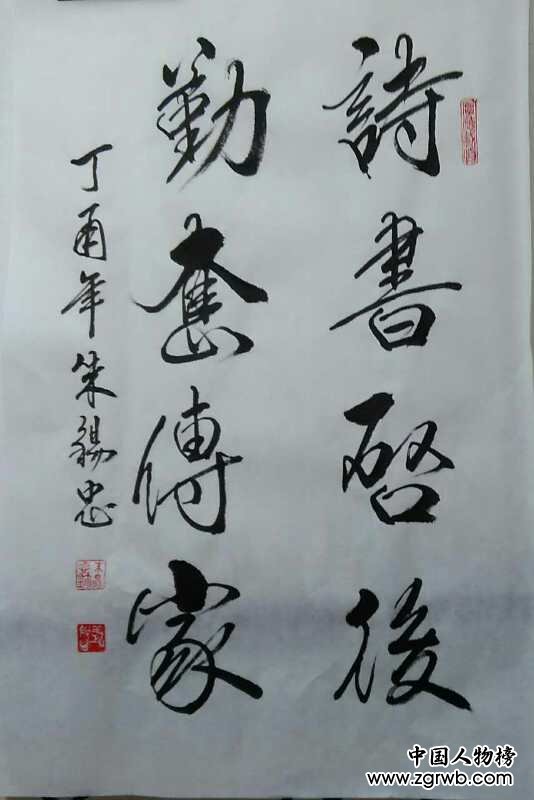 詩書啓後
勤奮傳家
丁酉年朱錫忠
中国人物榜
www.zgrwb.com